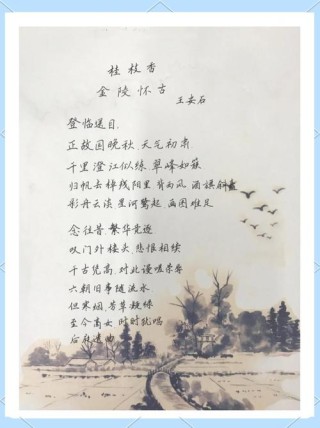 桂枝香
金陵怀古
王安石
登临送目,
正故国晚秋,天气初肃
千里澄江似练,翠峰如蔟
归帆去棹残阳里,背西风,酒旗斜矗
彩舟云淡,星河鹭起,画图难足
念往昔,繁华竞逐
叹门外楼头,悲恨相续
千古凭高,对此谩嗟荣辱
六朝旧事随流水
但寒烟,芳草凝绿
至今商女,时时犹唱
后庭遗曲